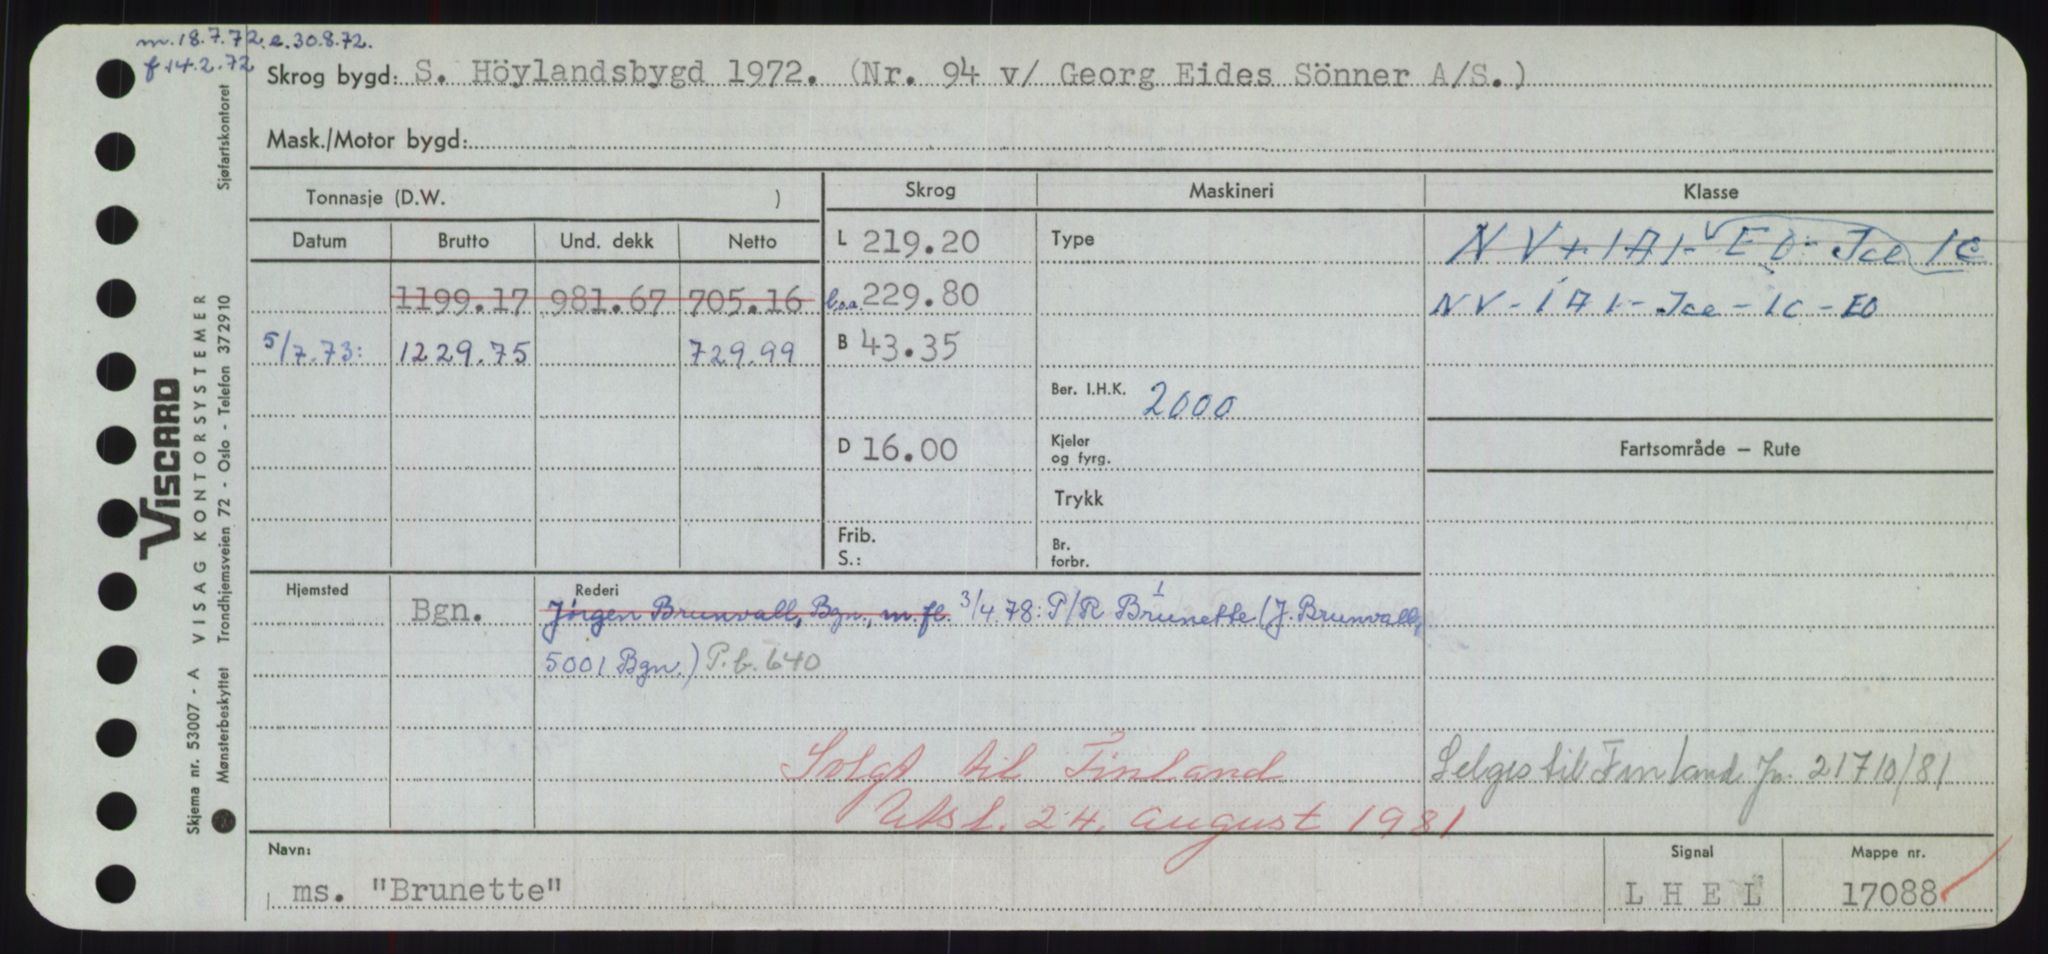 m. 18.7.72. e. 30.8.72.
f 14.2.72
Skrog bygd: S. Höylandsbygd 1972. (Nr. 94 v/ Georg Eides Sönner A/S.)
Mask./Motor bygd:
Tonnasje (D.W. )
Skrog Maskineri Klasse
Datum Brutto Und. dekk Netto
L 219.20 Type NV+1A1-EO-Ice 1C
1199.17 981.67 705.16 l.o.a. 229.80 NV-1A1-Ice-1C-EO
5/7.73: 1229.75 729.99 B 43.35
Ber. I.H.K. 2000
D 16.00 Kjeler og fyrg. Fartsområde – Rute
Trykk
Frib. S.: Br. forbr.
Hjemsted Rederi
Bgn. Jörgen Brunvall, Bgn., m.fl. 3/4.78: P/R Brunette (J. Brunvall,
5001 Bgn.) P.b. 640
Solgt til Finland Selges til Finland Jn. 21710/81
Utsl. 24. august 1981
Navn: Signal Mappe nr.
ms. "Brunette" L H E L 17088
VISCARD
Skjema nr. 53007 - A VISAG KONTORSYSTEMER
Mønsterbeskyttet Trondhjemsveien 72 - Oslo - Telefon 372910
Sjøfartskontoret